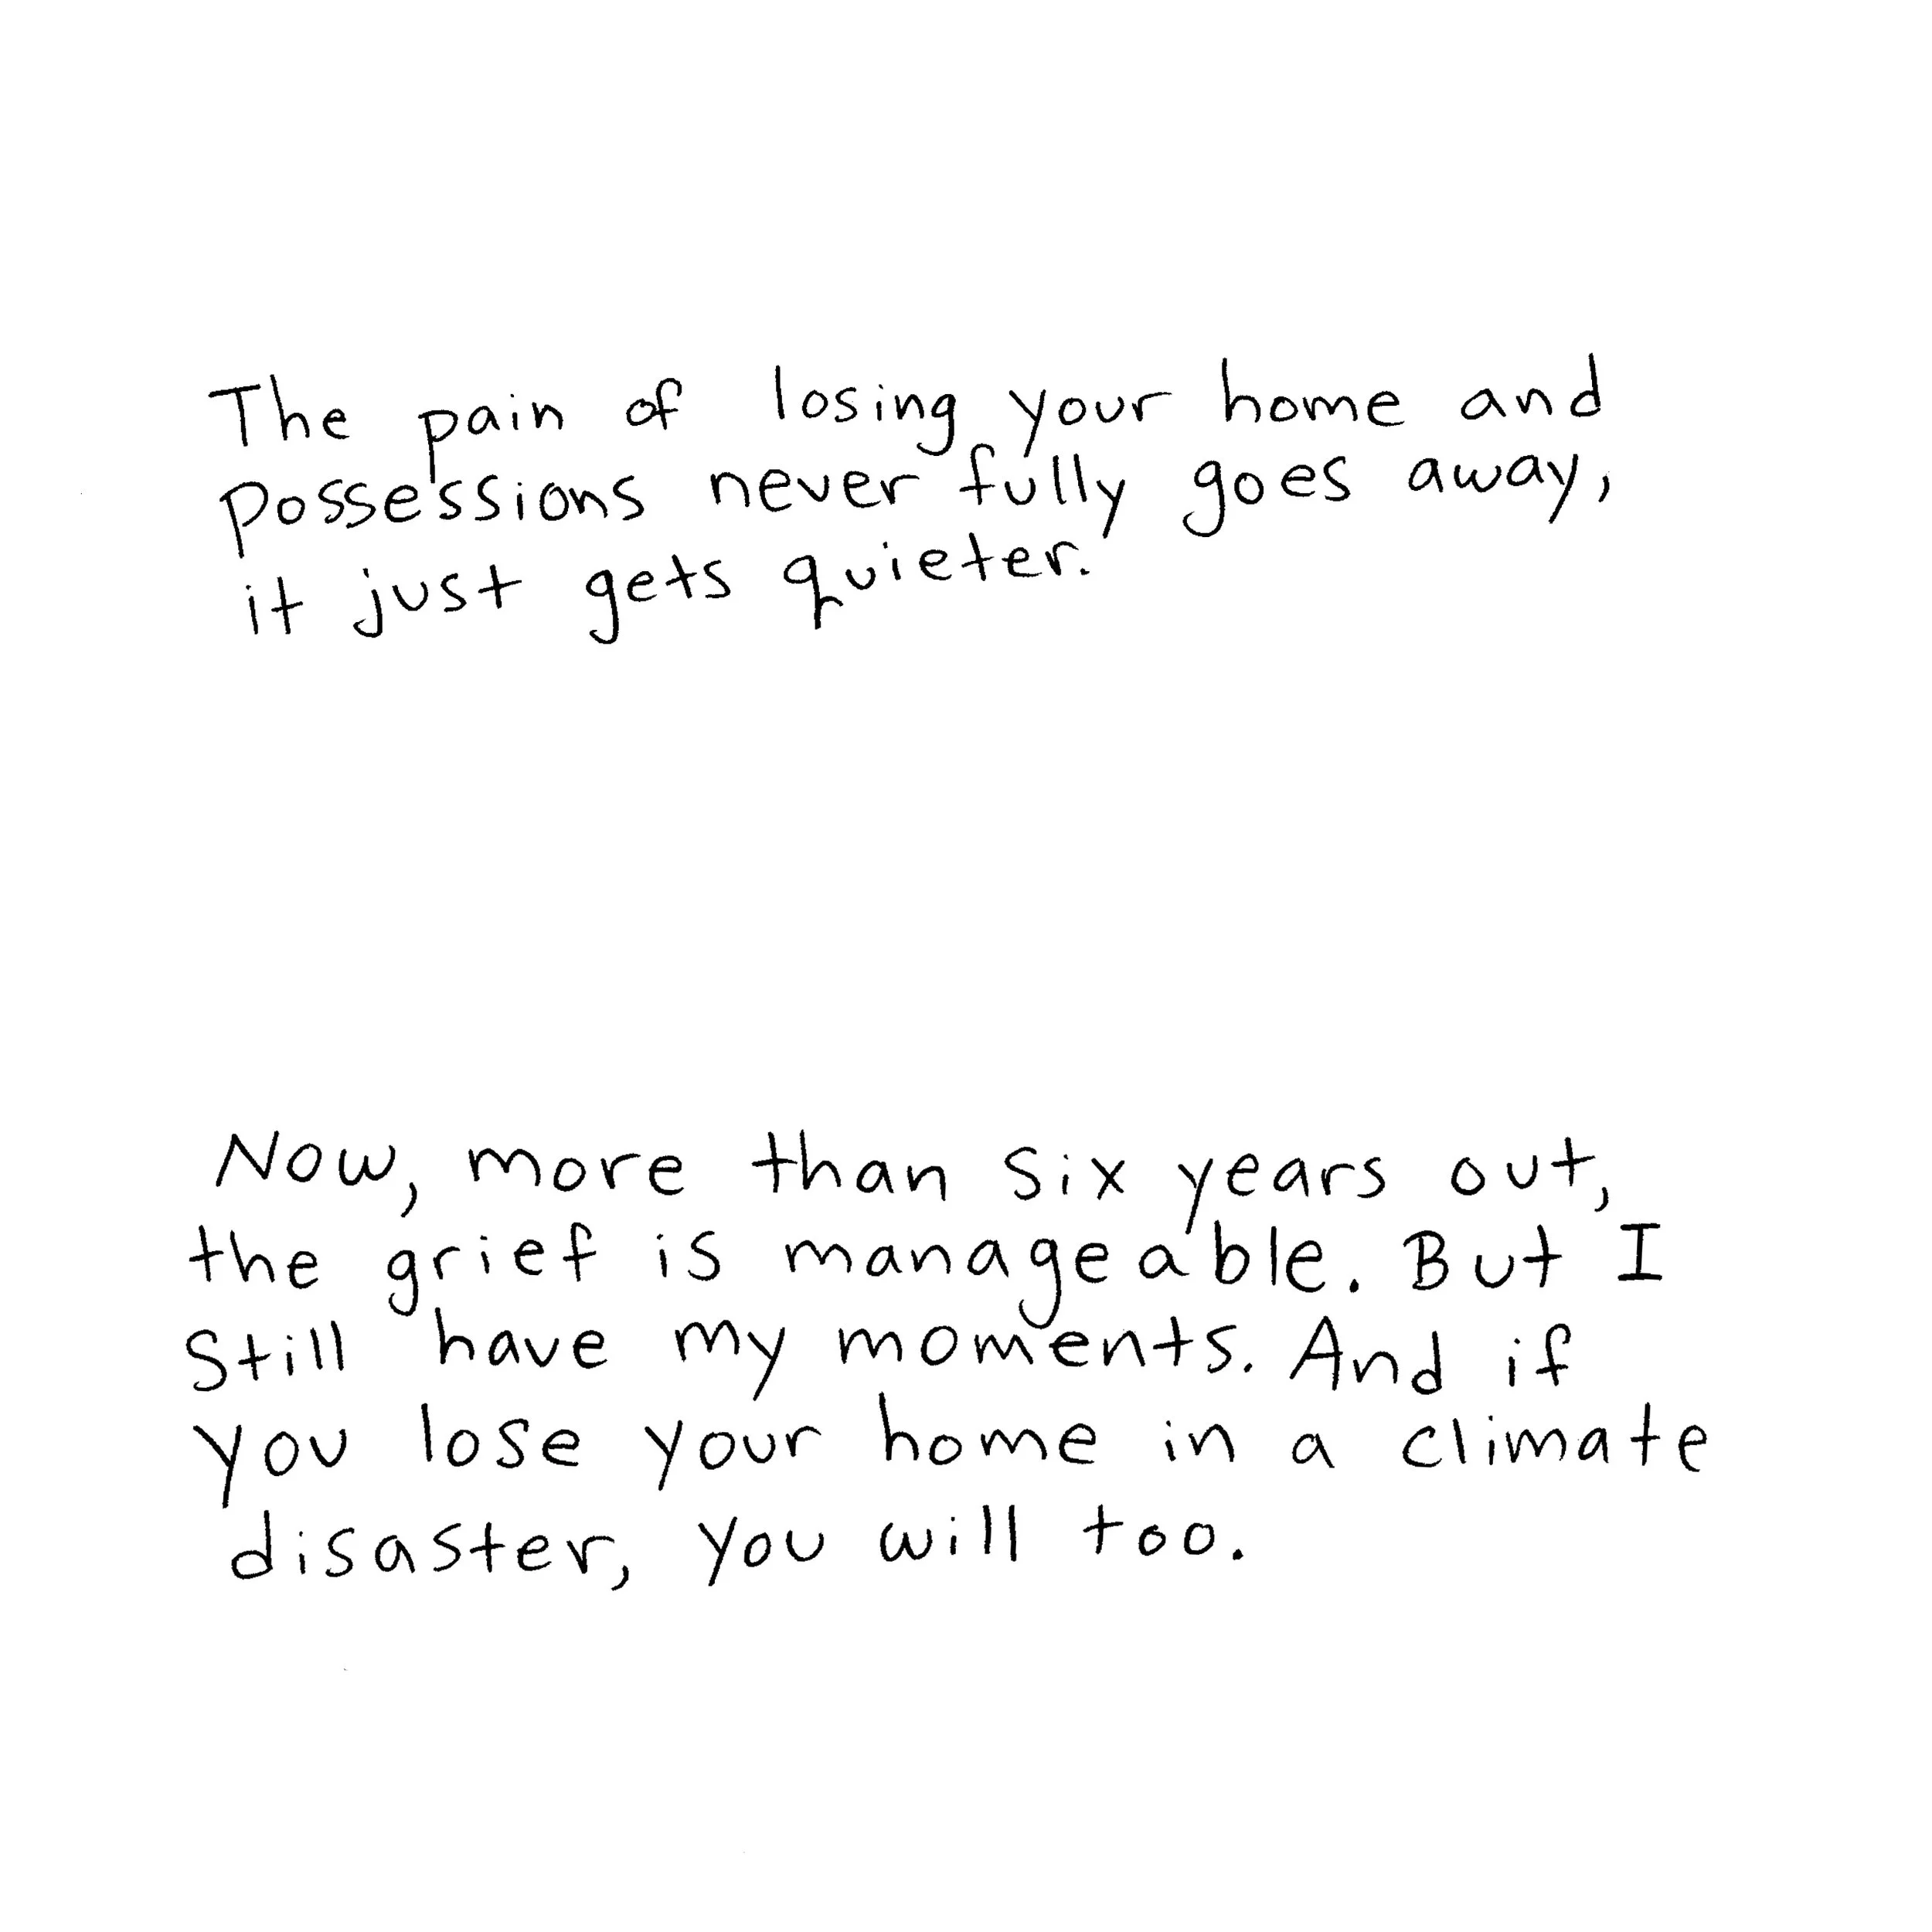 The pain of losing your home and
possessions never fully goes away,
it just gets quieter.
Now, more than six years out,
the grief is manageable. But I
still have my moments. And if
you lose your home in a climate
disaster, you will too.